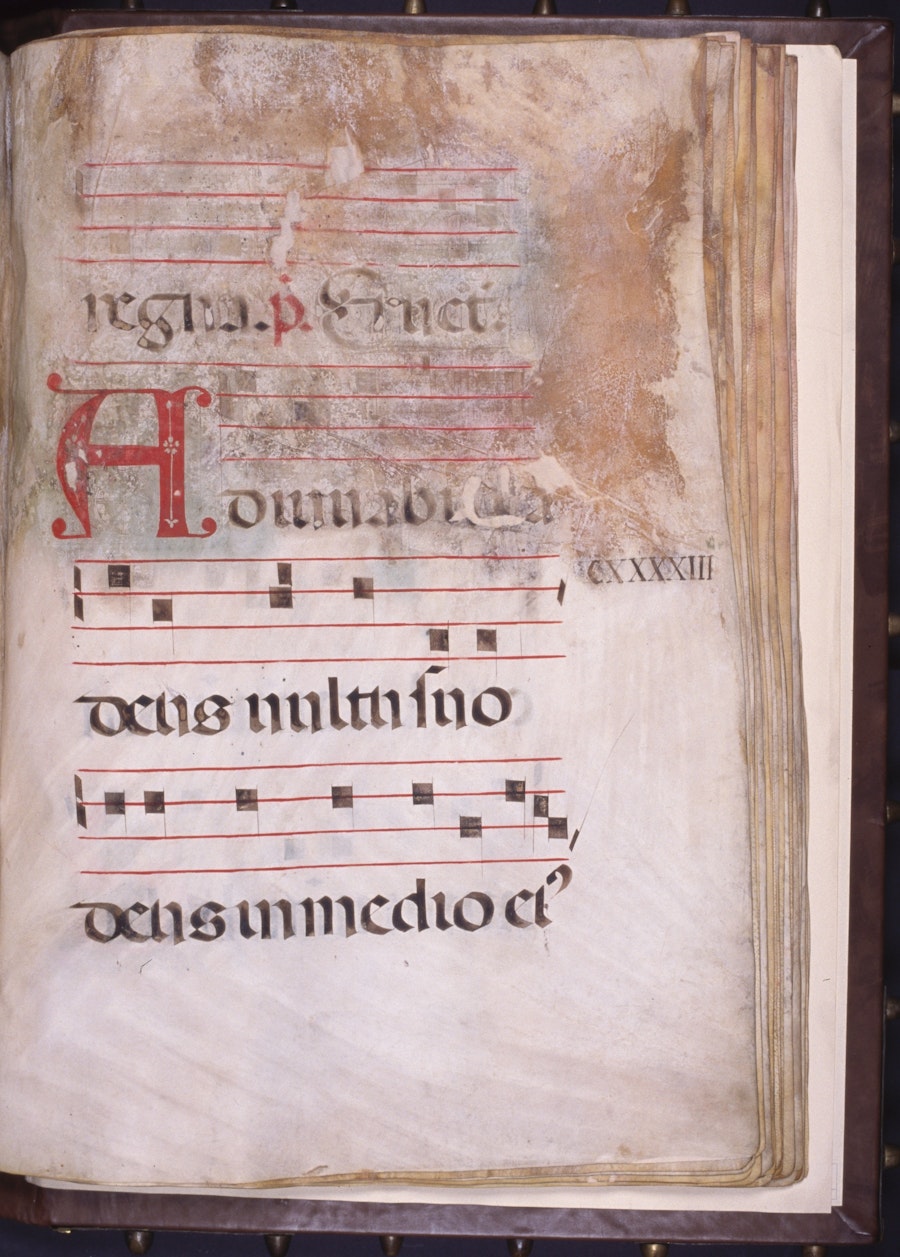 regina. p. Eruct.
Adiuuabit ea
CXXXXIII
deus uultu ſuo
deus in medio eiꝰ